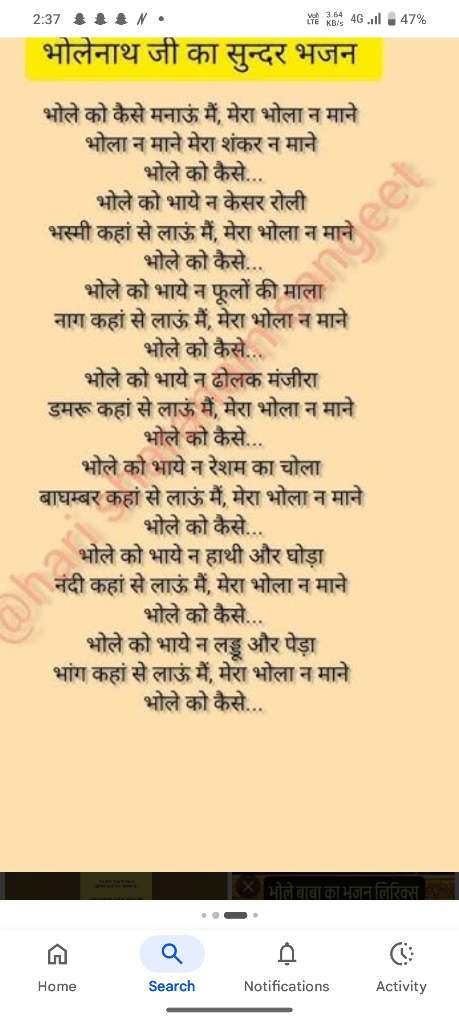 2:37
Vo) LTE 3.64 KB/s 4G 47%
भोलेनाथ जी का सुन्दर भजन
भोले को कैसे मनाऊं मैं, मेरा भोला न माने
भोला न माने मेरा शंकर न माने
भोले को कैसे...
भोले को भाये न केसर रोली
भस्मी कहां से लाऊं मैं, मेरा भोला न माने
भोले को कैसे...
भोले को भाये न फूलों की माला
नाग कहां से लाऊं मैं, मेरा भोला न माने
भोले को कैसे...
भोले को भाये न ढोलक मंजीरा
डमरू कहां से लाऊं मैं, मेरा भोला न माने
भोले को कैसे...
भोले को भाये न रेशम का चोला
बाघम्बर कहां से लाऊं मैं, मेरा भोला न माने
भोले को कैसे...
भोले को भाये न हाथी और घोड़ा
नंदी कहां से लाऊं मैं, मेरा भोला न माने
भोले को कैसे...
भोले को भाये न लड्डू और पेड़ा
भांग कहां से लाऊं मैं, मेरा भोला न माने
भोले को कैसे...
@hari sharanam sangeet
भोले बाबा का भजन लिरिक्स
Home Search Notifications Activity